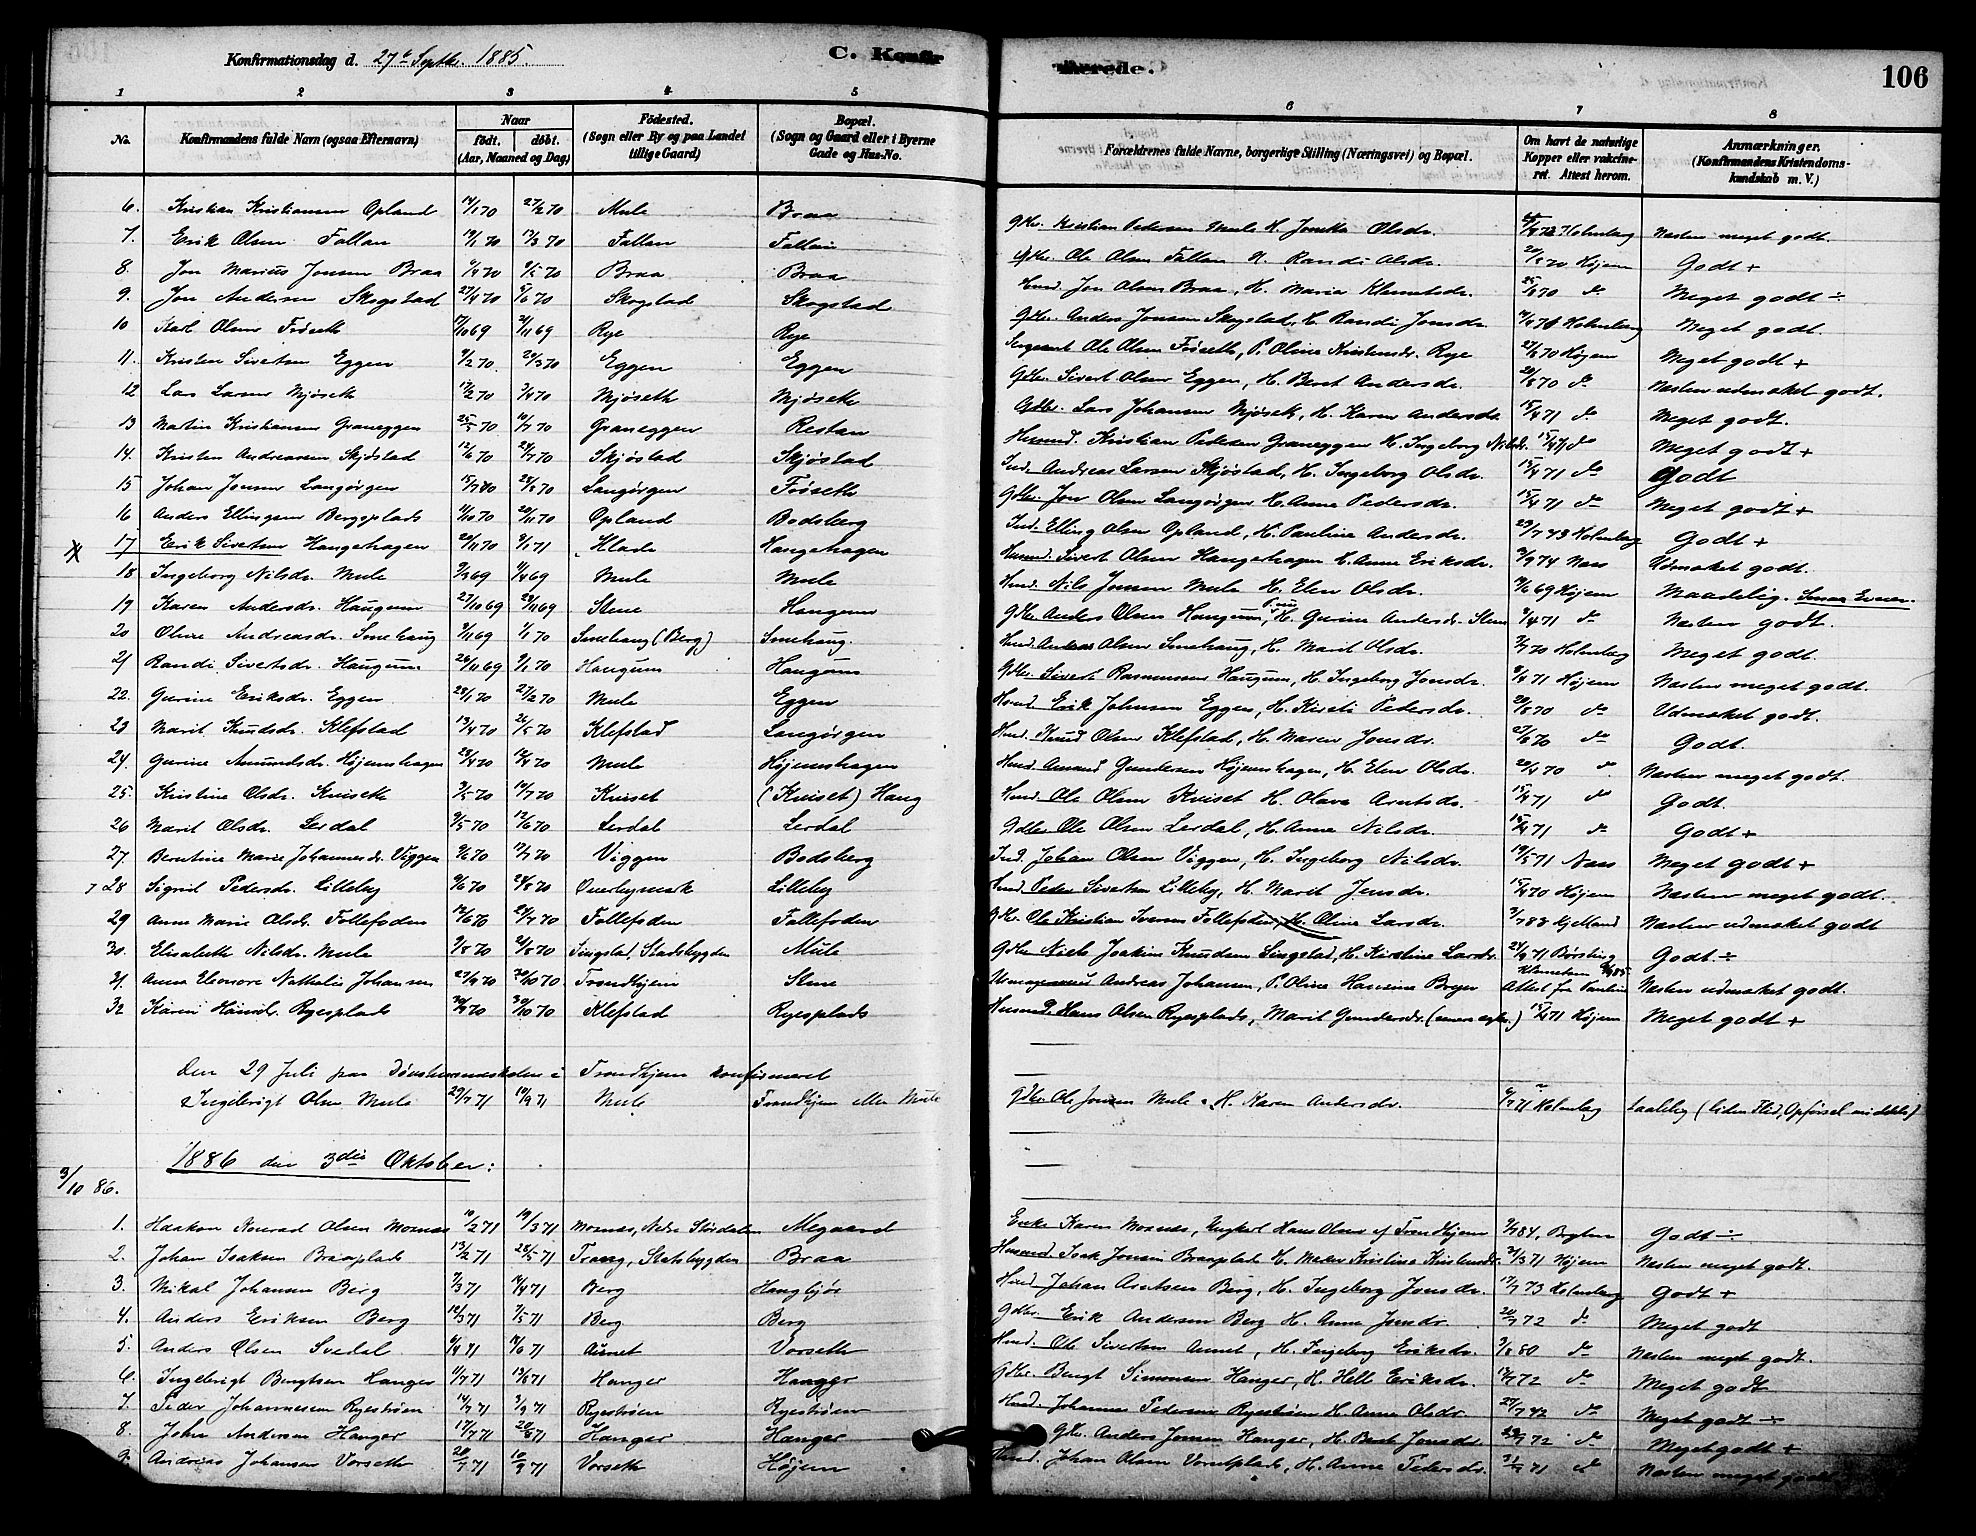 Konfirmationsdag d. 27de Septbr. 1885.
C. Konfir merede.
106
1 2 3 4 5 6 7 8
No. Konfirmandens fulde Navn (ogsaa Efternavn) Naar födt. döbt. (Aar, Maaned og Dag) Födested. (Sogn eller By og paa Landet tillige Gaard) Bopæl. (Sogn og Gaard eller i Byerne Gade og Hus-No. Forældrenes fulde Navne, borgerlige Stilling (Næringsvei) og Bopæl. Om havt de naturlige Kopper eller vakcineret. Attest herom. Anmærkninger. (Konfirmandens Kristendomskundskab m. V.)
6. Kristian Kristiansen Opland 14/1 70 27/2 70 Mule Braa Gbr. Kristian Pedersen Mule H. Olsdr. Holmberg Næsten meget godt.
7. Erik Olsen Fallan 19/1 70 13/3 70 Fallan Fallan Gbr. Ole Olsen Fallan H. Randi Olsdr. 20/8 70 Højem Godt +
8. Jon Marius Jonsen Braa 6/4 70 9/5 70 Braa Braa Husmd. Jon Olsen Braa, H. Maria Klemetsdr. 25/8 70 do Meget godt ÷
9. Jon Andersen Skogstad 27/4 70 5/6 70 Skogstad Skogstad Gbr. Anders Jonsen Skogstad, H. Randi Jonsdr. Holmberg Meget godt.
10 Karl Olsen Fröseth 17/10 69 21/11 69 Rye Rye Sergeant Ole Olsen Fröseth, P. Oline Kristensdr. Rye 21/8 70 Højem Meget godt +
11. Kristen Sivertsen Eggen 9/2 70 20/3 70 Eggen Eggen Gbr. Sivert Olsen Eggen, H. Berit Andersdr. 20/8 70 do Næsten udmærket godt.
12 Lars Larsen Mjöseth 17/2 70 3/4 70 Mjöseth Mjöseth Gbr. Lars Johansen Mjöseth, H. Karen Andersdr. 15/4 71 do Meget godt.
13 Martin Kristiansen Graneggen 25/5 70 10/7 70 Graneggen Restan Husmd. Kristian Pedersen Graneggen H. Ingeborg Nilsdr. 15/4 71 do Meget godt +
14. Kristen Andreassen Skjöstad 12/6 70 24/7 70 Skjöstad Skjöstad Ind. Andreas Larsen Skjöstad, H. Ingeborg Olsdr. 15/4 71 do Godt
15 Johan Jonsen Langörgen 15/7 70 28/8 70 Langörgen Fröseth Gbr. Jon Olsen Langörgen H. Anne Pedersdr. 15/4 71 do Meget godt +
16 Anders Ellingsen Bergsplads 4/10 70 20/11 70 Opland Bodsberg Ind. Elling Olsen Opland, H. Pauline Andersdr. Holmberg Godt +
17 Erik Sivertsen Haugehagen 20/11 70 8/1 71 Klade Haugehagen Husmd. Sivert Olsen Haugehagen H. Anne Eriksdr. 3/9 74 Næss Udmærket godt.
18 Ingeborg Nilsdr. Mule 2/3 69 4/4 69 Mule Mule Husmd. Nils Jonsen Mule H. Elen Olsdr. 69 Højem Maadelig. Smaa Evner.
19 Karen Andersdr. Haugum 27/10 69 28/11 69 Stene Haugum Gbr. Anders Olsen Haugum, H. Gurine Andersdr. Stene 9/4 71 do Næsten godt.
20 Oline Andreasdr. Smehaug 9/11 69 1/1 70 Smehaug (Berg) Smehaug Husmd. Andreas Olsen Smehaug, H. Marit Olsdr. 70 Holmberg Meget godt.
21 Randi Sivertsdr. Haugum 26/11 69 9/1 70 Haugum Haugum Gbr. Sivert Rasmussen Haugum, H. Ingeborg Jonsdr. 71 Højem Næsten meget godt.
22. Gurine Eriksdr. Eggen 24/1 70 27/2 70 Mule Eggen Husmd. Erik Johnsen Eggen, H. Kirsti Pedersdr. 20/8 70 do Udmærket godt.
23 Marit Knudsdr. Klefstad 13/4 70 26/5 70 Klefstad Langörgen Husmd. Knud Olsen Klefstad, H. Maren Jonsdr. 21/8 70 do Godt.
24. Gurine Amundsdr. Höjemshagen 70 70 Mule Höjemshagen Husmd. Amund Gundersen Höjemshagen, H. Elen Olsdr. 70 do Næsten meget godt.
25. Kristine Olsdr. Kviseth 3/5 70 10/7 70 Kviset (Kviset) Haug Husmd. Ole Olsen Kviset H. Olava Arntsdr. 15/4 71 do Godt.
26 Marit Olsdr. Lerdal 9/5 70 12/6 70 Lerdal Lerdal Gbr. Ole Olsen Lerdal, H. Anne Nilsdr. 15/4 71 do Godt +
27. Berntine Marie Johannesdr. Viggen 9/6 70 17/7 70 Viggen Bodsberg Ind. Johan Olsen Viggen, H. Ingeborg Nilsdr. 19/5 71 Næss Meget godt +
28 Sigrid Pedersdr. Lilleby 70 70 Overbymark Lilleby Husmd. Peder Sivertsen Lilleby, H. Marit Jensdr. 70 Højem Næsten meget godt.
29 Anne Marie Olsdr. Follefoden 12/6 70 24/7 70 Follefoden Follefoden Gbr. Ole Kristian Iversen Follefoden, H. Oline Larsdr. 83 Næsten udmærket godt
30. Elisabeth Nilsdr. Mule 2/8 70 21/8 70 Singstad, Stadsbygden Mule Gbr. Niels Joakim Knudsen Singstad, H. Kirstine Larsdr. 71 Börstin Godt ÷
31. Anna Eleonore Nathalie Johansen 27/9 70 30/10 70 Trondhjem Stene Andreas Johansen, P. Oline Hansine Attest fra Næsten udmærket godt.
32 Karen Hansdr. Ryesplads 70 30/10 70 Klefstad Ryesplads Husmd. Hans Olsen Ryesplads, Marit Gundersdr. 15/4 71 Højem Meget godt +
Den 29 Juli paa Dövstummeskolen i Trondhjem konfirmeret
Ingebrigt Olsen Mule 29/7 71 10/9 71 Mule Trondhjem eller Mule Gbr. Ole Jonsen Mule, H. Karen Andersdr. 71 Holmberg taalelig (liden Flid, Opförsel middels)
1886 den 3die Oktober:
3/10 86.
1. Haakon Konrad Olsen Mornæs 10/2 71 19/3 71 Mornæs, Nedre Stördalen Megaard Enke Karen Mornæs, Ungkarl Hans Olsen af Trondhjem 84, Godt ÷
2. Johan Isaksen Braaplads 13/2 71 28/5 71 Trang, Stadsbygden Braa Husmd. Isak Jonsen Braaplads H. Kristine Kristensdr. 71 Højem Næsten meget godt.
3. Mikal Johansen Berg 7/3 71 71 Berg Haugbjör Husmd. Johan Arntsen Berg, H. Ingeborg Jonsdr. 17/7 73 Holmberg Godt +
4. Anders Eriksen Berg 10/3 71 7/5 71 Berg Berg Gbr. Erik Andersen Berg H. Anne Jonsdr. 72 do Meget godt
5. Anders Olsen Svedal 4/4 71 71 Aunet Vorseth Husmd. Ole Sivertsen Aunet, H. Ingeborg Eriksdr. 3/8 80 do Næsten meget godt.
6. Ingebrigt Bengtsen Hanger 71 71 Hanger Hanger Gbr. Bengt Simonsen Hanger, H. Eriksdr. 72 do Meget godt
7. Peder Johannessen Ryeströen 14/7 71 3/9 71 Ryeströen Ryeströen Husmd. Johannes Pedersen Ryeströen H. Anne Olsdr. do Meget godt ÷
8. John Andersen Hanger 17/7 71 71 Hanger Hanger Gbr. Anders Jonsen Hanger, H. Berit Jonsdr. 72 do Meget godt +
9. Andreas Johansen Vorseth 20/7 71 10/9 71 Vorseth Höjem Husmd. Johan Olsen H. Anne Pedersdr. 71 do Næsten meget godt